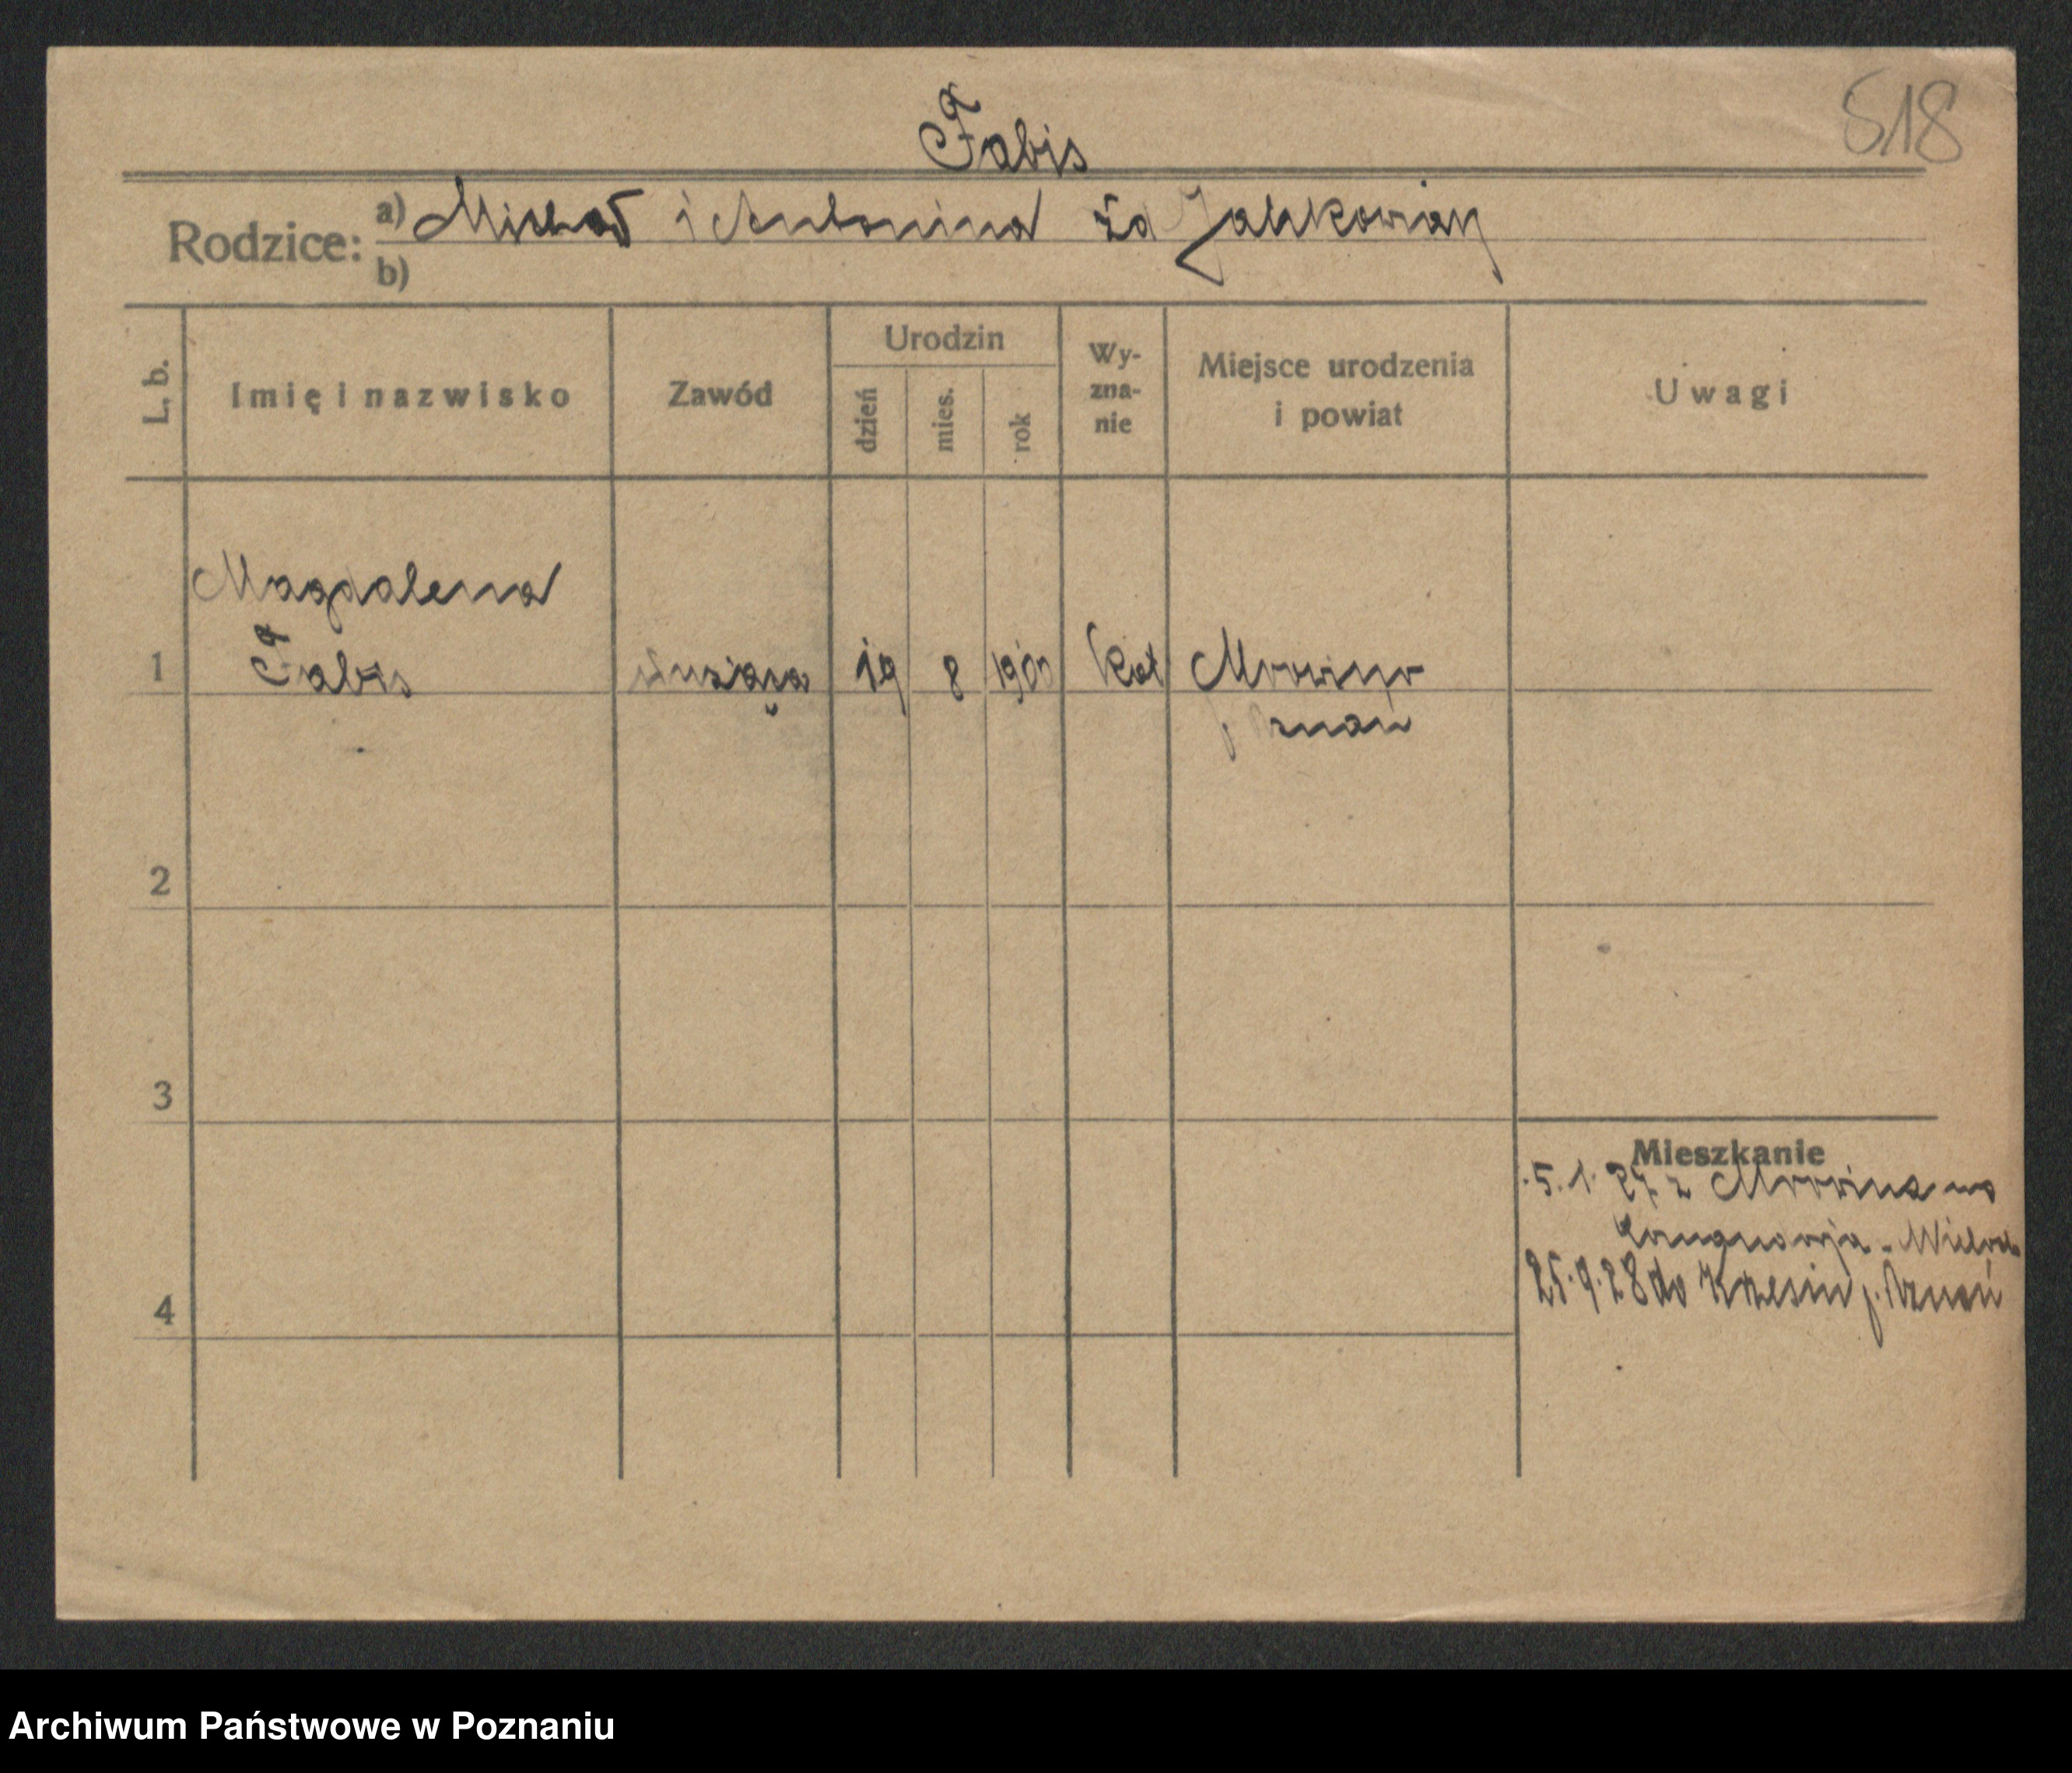 518
Fabis
Rodzice: a) Michał i Antonina
b)
L. b.
Imię i nazwisko
Zawód
Urodzin
dzień
mies.
rok
Wy-
zna-
nie
Miejsce urodzenia
i powiat
Uwagi
Magdalena
1 Fabis służąca 19 8 1900 kat Mrowino
p. Poznań
2
3
Mieszkanie
5.1.27. z Mrowina
25.9.28 do Krzesin p. Poznań
4
Archiwum Państwowe w Poznaniu